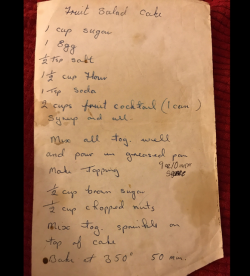 Fruit Salad Cake
1 cup sugar
1 Egg
1/2 tsp salt
1 1/2 cup flour
1 tsp soda
2 cups fruit cocktail (1 can)
syrup and all.
Mix all tog. well
and pour in greased pan
Make Topping
square
1/2 cup brown sugar
1/2 cup chopped nuts
Mix tog. sprinkle on
top of cake
Bake at 350° 50 min.